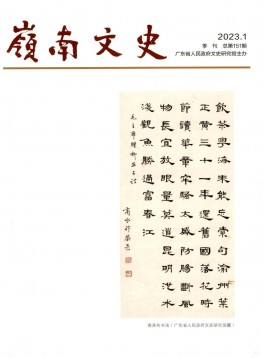 2023.1
季 刊 总第151期
广东省人民政府文史研究馆主办
嶺南文史
飲茶粵海未能忘索句渝州葉
正黃三十一年還舊國落花時
節讀華章牢騷太盛防腸斷風
物長宜放眼量莫道昆明池水
淺觀魚勝過富春江
毛主席贈柳亞子詩
商承祚
商承祚书法（广东省人民政府文史研究馆藏）